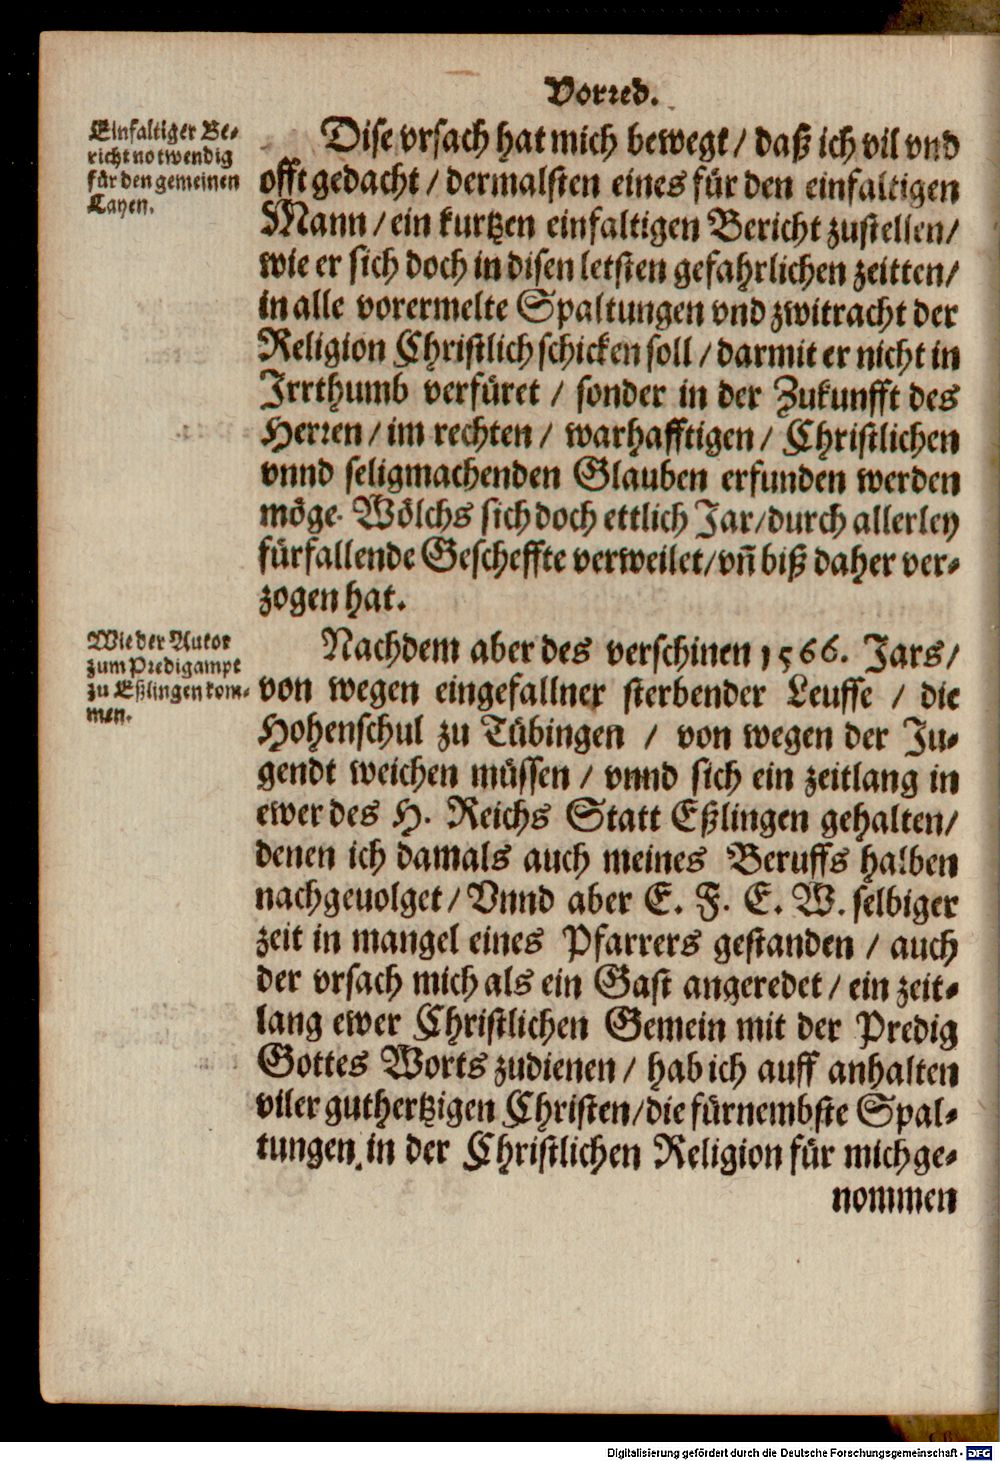 Vorred.
Einfaltiger Be-
richt notwendig
für den gemeinen
Layen.
Dise vrsach hat mich bewegt / daß ich vil vnd
offt gedacht / dermalsten eines für den einfaltigen
Mann / ein kurtzen einfaltigen Bericht zustellen /
wie er sich doch in disen letsten gefahrlichen zeitten /
in alle vorermelte Spaltungen vnd zwitracht der
Religion Christlich schicken soll / darmit er nicht in
Irrthumb verfüret / sonder in der Zukunfft des
Herren / im rechten / warhafftigen / Christlichen
vnnd seligmachenden Glauben erfunden werden
möge. Wölchs sich doch ettlich Jar / durch allerley
fürfallende Gescheffte verweilet / vñ biß daher ver-
zogen hat.
Wie der Autor
zum Predigampt
zu Eßlingen kom-
men.
Nachdem aber des verschinen 1566. Jars /
von wegen eingefallner sterbender Leuffe / die
Hohenschul zu Tübingen / von wegen der Ju-
gendt weichen müssen / vnnd sich ein zeitlang in
ewer des H. Reichs Statt Eßlingen gehalten /
denen ich damals auch meines Beruffs halben
nachgeuolget / Vnnd aber E. F. E. W. selbiger
zeit in mangel eines Pfarrers gestanden / auch
der vrsach mich als ein Gast angeredet / ein zeit-
lang ewer Christlichen Gemein mit der Predig
Gottes Worts zudienen / hab ich auff anhalten
viler guthertzigen Christen / die fürnembste Spal-
tungen in der Christlichen Religion für mich ge-
nommen
Digitalisierung gefördert durch die Deutsche Forschungsgemeinschaft - DFG